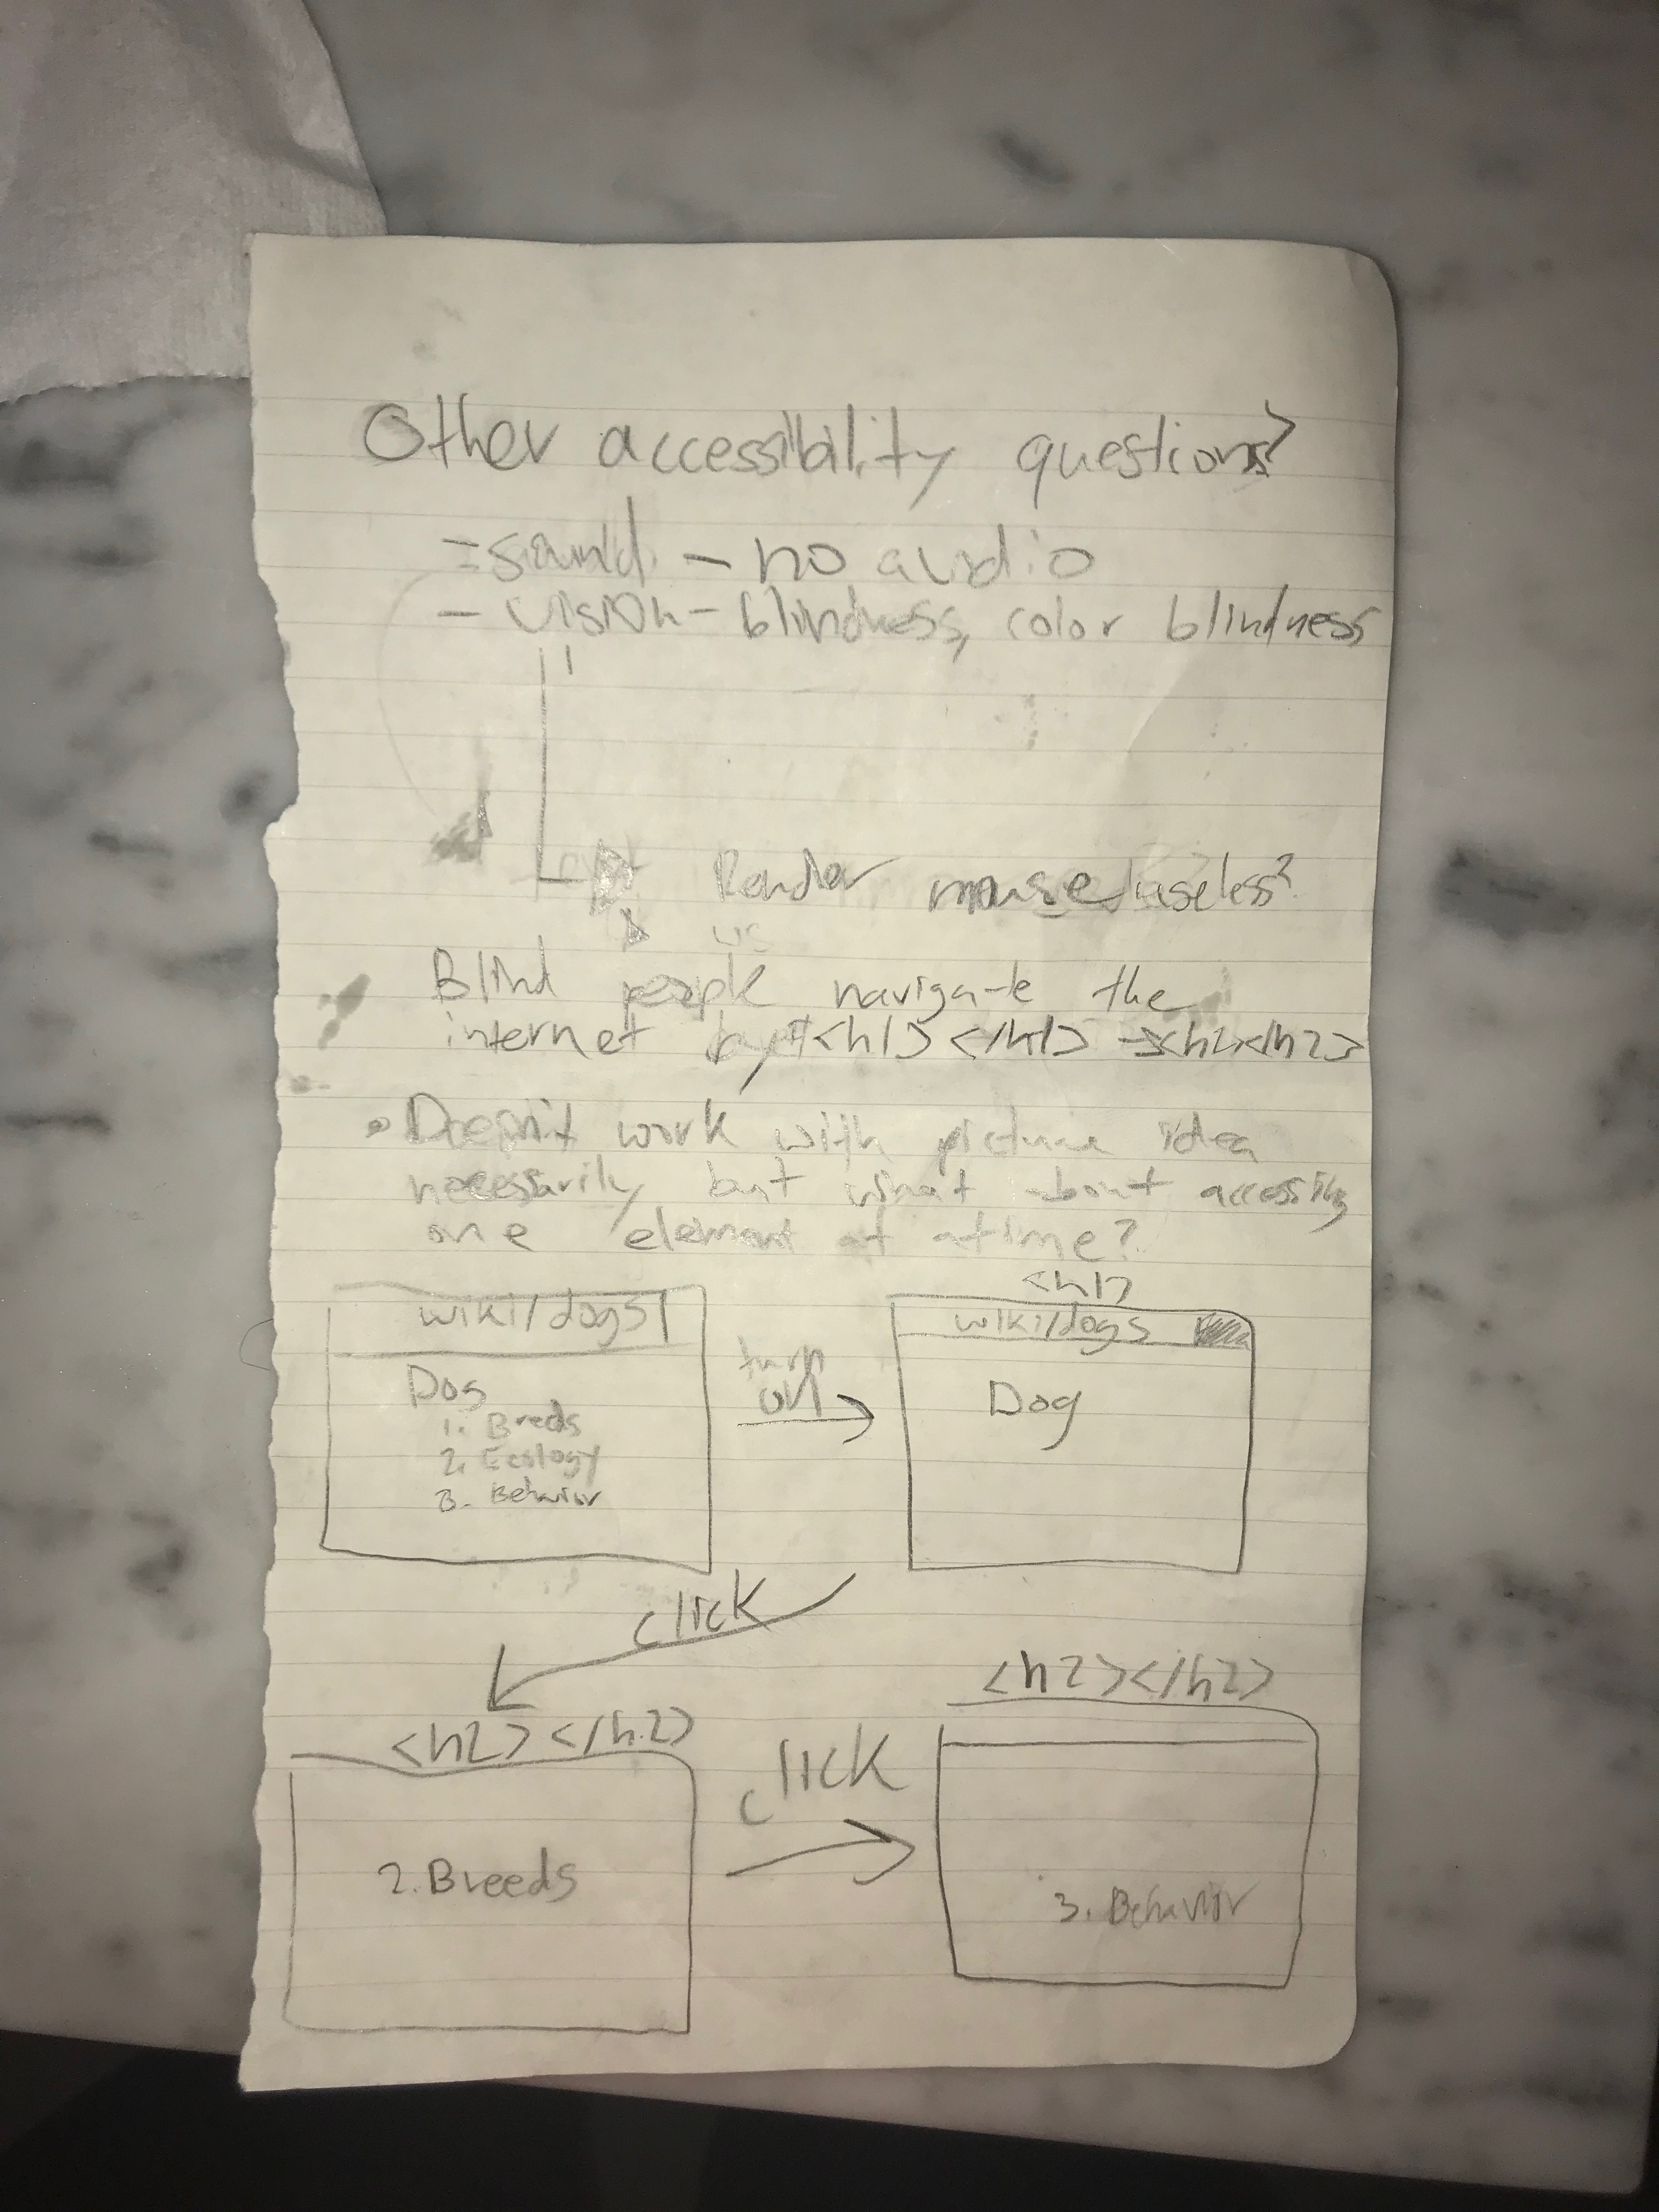 Other accessibility questions?
- sound - no audio
- vision - blindness, color blindness
Render mouse useless?
Blind people navigate the
internet by <h1></h1> → <h2></h2>
• Doesn't work with picture idea
necessarily but what about accessing
one element at a time?
wiki/dogs
Dog
1. Breeds
2. Ecology
3. Behavior
turn
on
<h1>
wiki/dogs
Dog
click
<h2></h2>
2. Breeds
click
<h2></h2>
3. Behavior